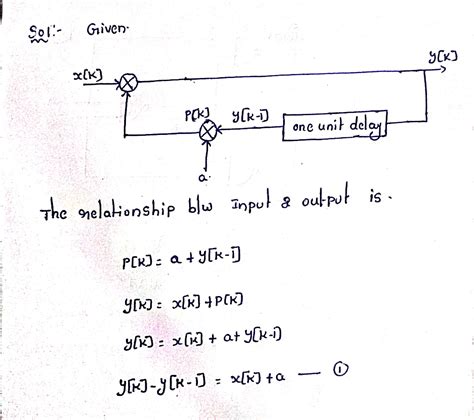 Sol:- Given.
y[k]
x[k]
P[k] y[k-1]
one unit delay
a.
The relationship b/w Input & output is.
P[k] = a + y[k-1]
y[k] = x[k] + P[k]
y[k] = x[k] + a + y[k-1]
y[k] - y[k-1] = x[k] + a — ①